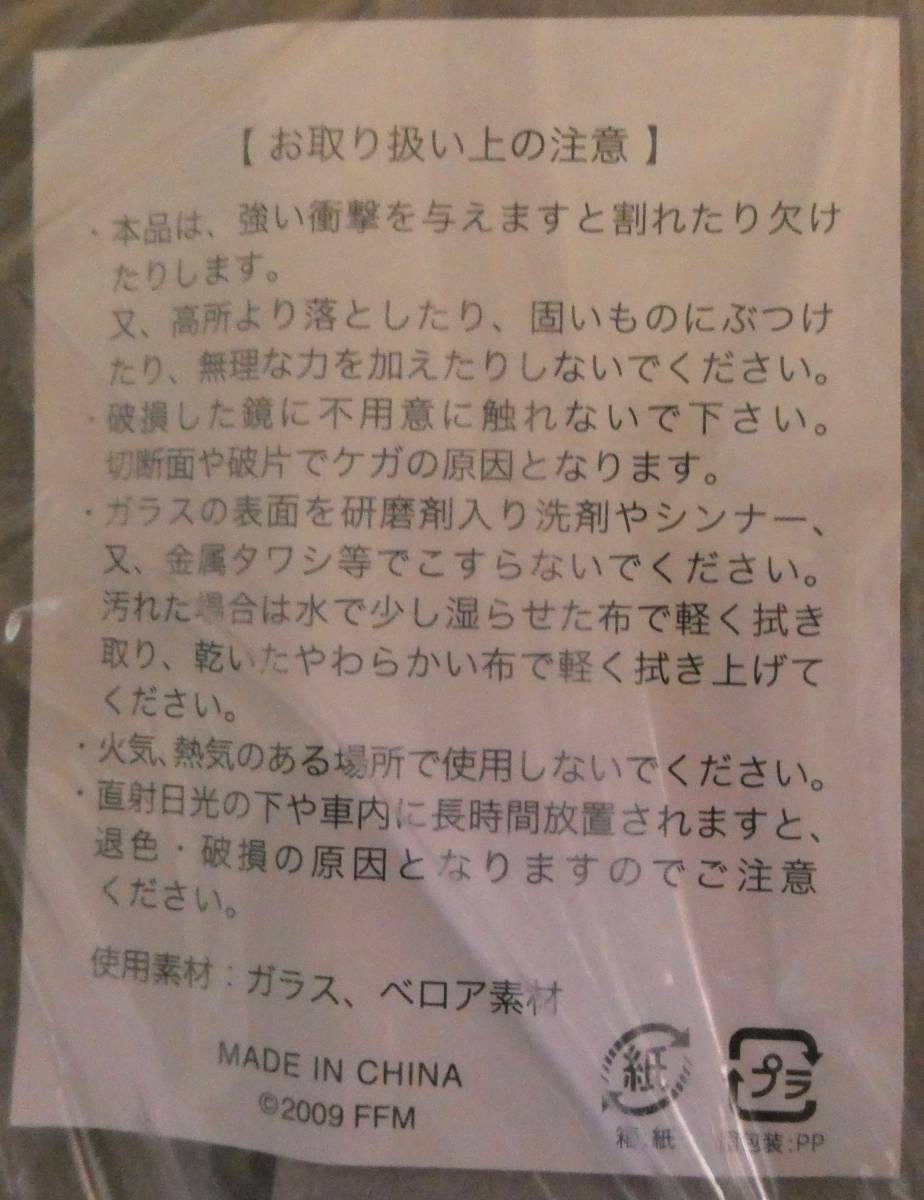 【 お取り扱い上の注意 】
・本品は、強い衝撃を与えますと割れたり欠け
たりします。
又、高所より落としたり、固いものにぶつけ
たり、無理な力を加えたりしないでください。
・破損した鏡に不用意に触れないで下さい。
切断面や破片でケガの原因となります。
・ガラスの表面を研磨剤入り洗剤やシンナー、
又、金属タワシ等でこすらないでください。
汚れた場合は水で少し湿らせた布で軽く拭き
取り、乾いたやわらかい布で軽く拭き上げて
ください。
・火気、熱気のある場所で使用しないでください。
・直射日光の下や車内に長時間放置されますと、
退色・破損の原因となりますのでご注意
ください。
使用素材：ガラス、ベロア素材
MADE IN CHINA
©2009 FFM
紙
プラ
箱:紙
包装:PP